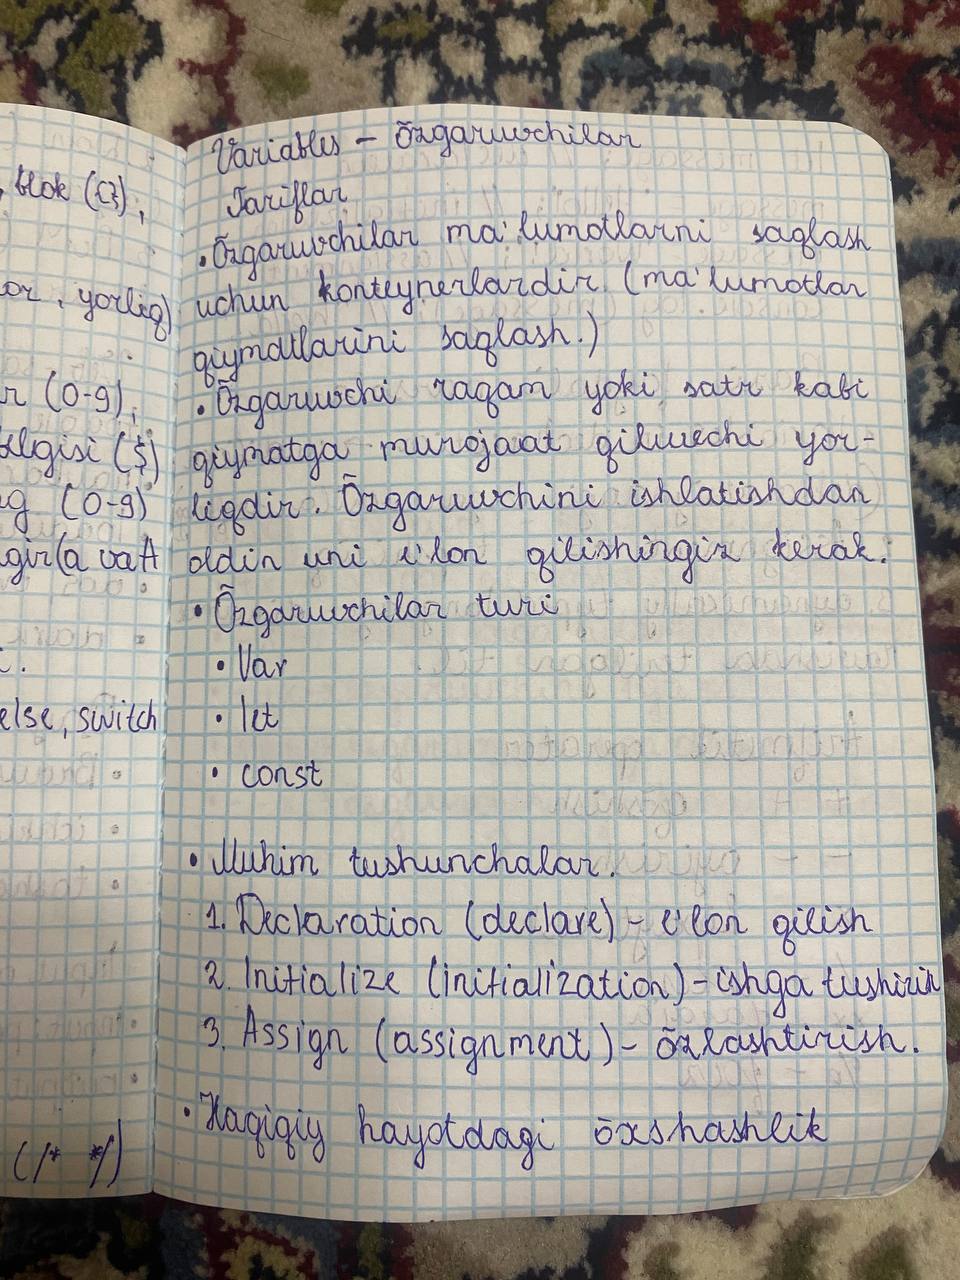 blok ({}),
or, yorliq)
r (0-9),
belgisi ($)
g (0-9)
gir(a va A
else, switch
(/* */)
Variables - Õzgaruvchilar
Tariflar
• Õzgaruvchilar ma'lumotlarni saqlash
uchun konteynerlardir (ma'lumotlar
qiymatlarini saqlash.)
• Õzgaruvchi raqam yoki satr kabi
qiymatga murojaat qiluvchi yor-
liqdir. Õzgaruvchini ishlatishdan
oldin uni e'lon qilishingiz kerak.
• Õzgaruvchilar turi
• Var
• let
• const
• Muhim tushunchalar.
1. Declaration (declare) - e'lon qilish
2. Initialize (initialization) - ishga tushirish
3. Assign (assignment) - õzlashtirish.
• Haqiqiy hayotdagi õxshashlik